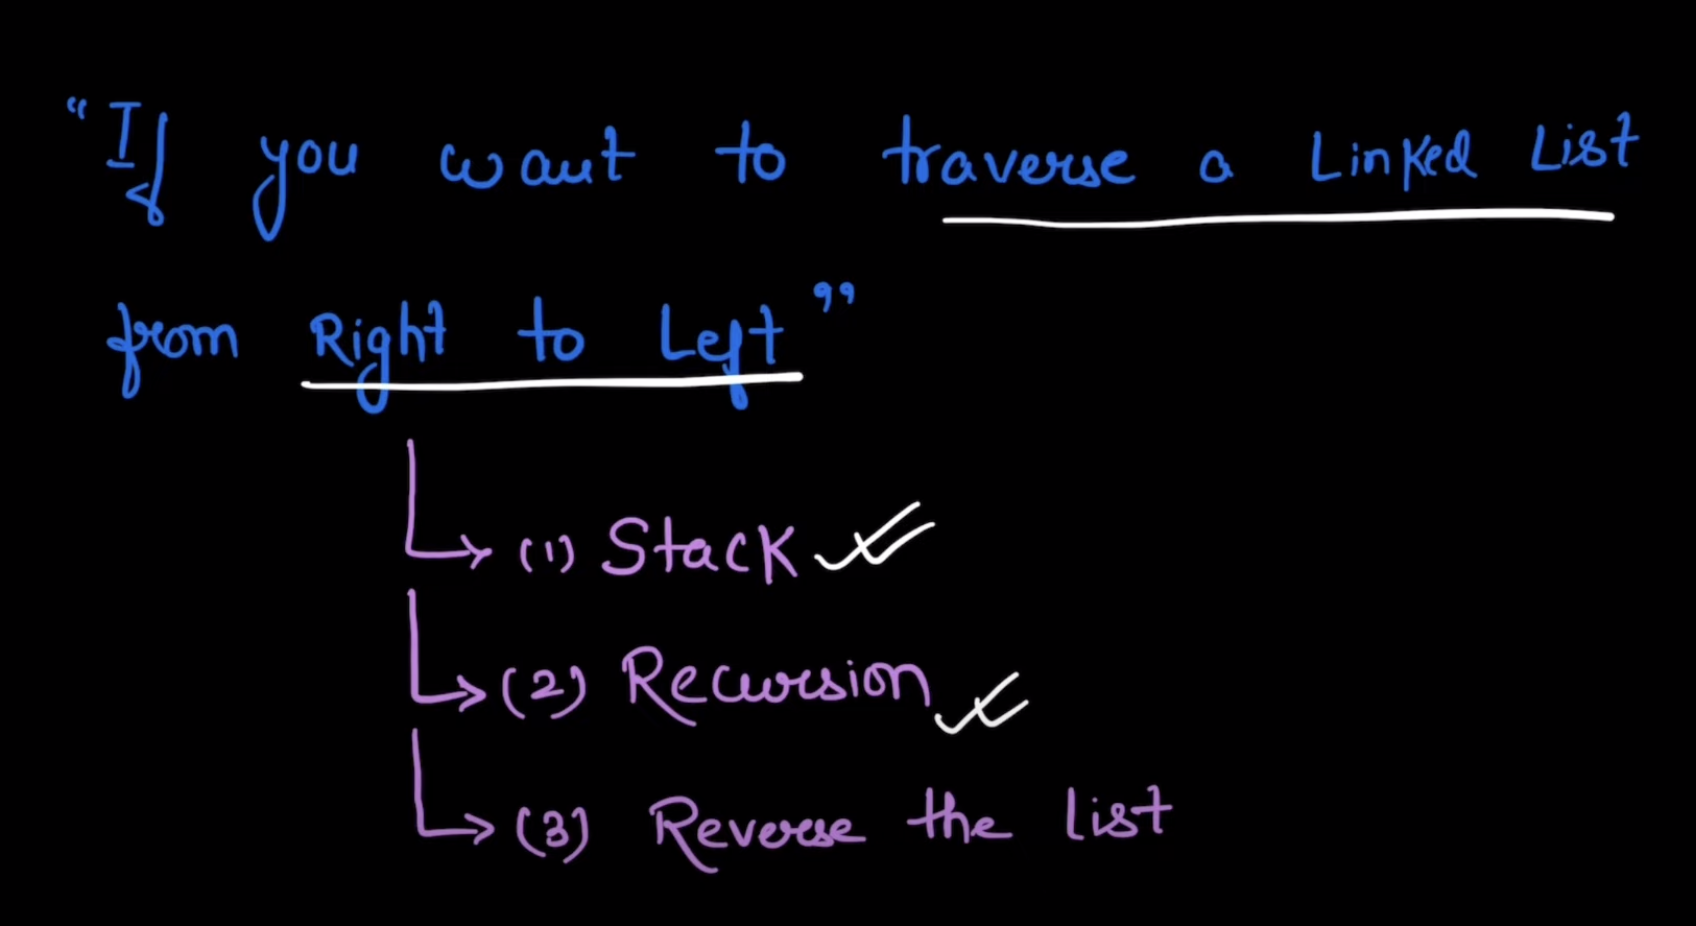 "If you want to traverse a Linked List
from Right to Left"
(1) Stack
(2) Recursion
(3) Reverse the list